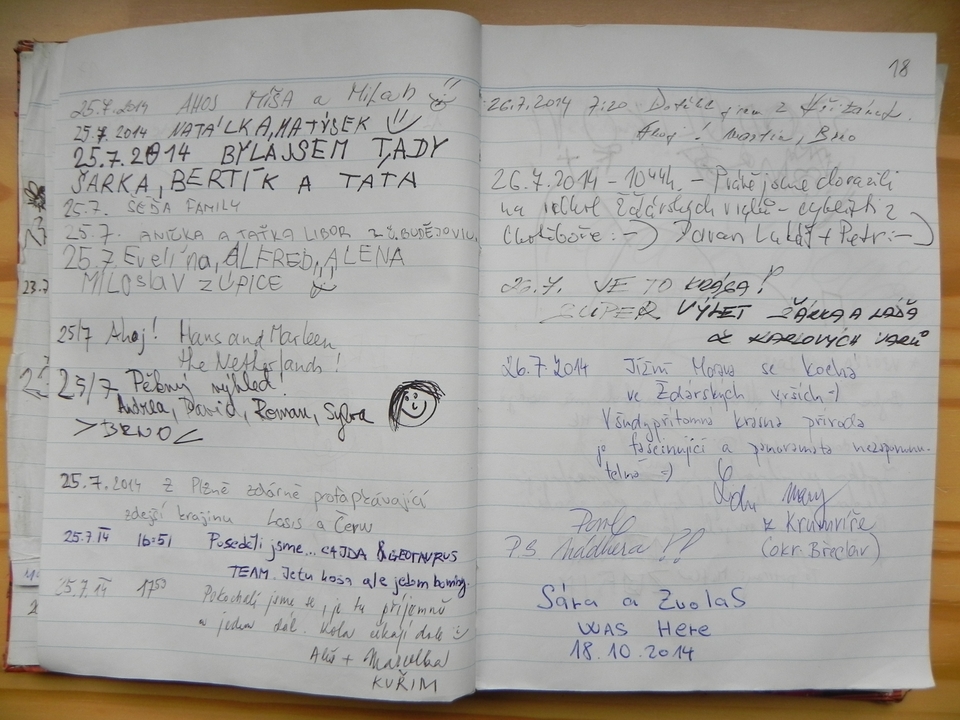 25.7.2014 AHOJ MÍŠA a
25.7.2014 NATÁLKA, MATÝSEK
25.7.2014 BYLA JSEM TADY
ŠÁRKA, BERTÍK A TÁTA
25.7. ŠÉŠA FAMILY
25.7. ANIČKA A TAŤKA LIBOR Z Č. BUDĚJOVIC
25.7. Evelína, ALFRED, ALENA
MILOSlav z ÚPICE
25/7 Ahoj! Hans and Marleen
the Netherlands!
25/7 Pěkný výhled!
Andrea, David, Roman, Sylva
>BRNO<
25.7.2014 z Plzně zdárně
zdejší krajinu a Červ
25.7.14 16:51 Poseděli jsme... & GEOTAURUS
TEAM. Je tu ale jedem
25.7.14 17 50 Pokochali jsme se, je tu příjemně
a jedem dál. Kola čekají dole
Aleš + Marcelka
KUŘIM
18
26.7.2014 7:20 jsem z
Ahoj! Martin, Brno
26.7.2014 - 10 44 h. - Právě jsme dorazili
na Žďárských vrchů -
Chotěboře :-) Pavan Lukáš + Petr :-)
JE TO KRÁSA!
SUPER VÝLET ŠÁRKA A LÁĎA
Z KARLOVÝCH VARŮ
26.7.2014 Jižní Morava se kochá
ve Žďárských vrších =)
Všudypřítomná krásná příroda
je fascinující a panoramata nezapomenu-
telná =)
z Krumvíře
P.S. Nádhera !! (okr. Břeclav)
Sára a ZuolaS
WAS Here
18.10.2014